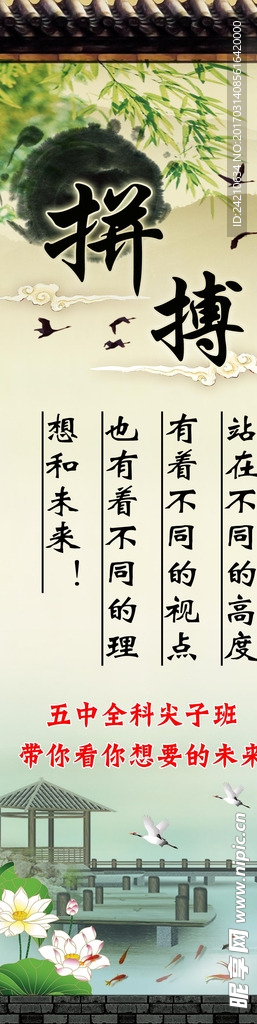 拼搏
站在不同的高度
有着不同的视点
也有着不同的理
想和未来！
五中全科尖子班
带你看你想要的未来
ID:24210634 NO:20170314085616420000
昵享网 www.nipic.cn